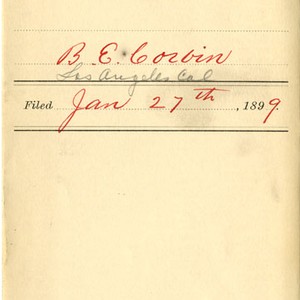 B. E. Corvin
Los Angeles Cal
Filed Jan 27th, 1899.